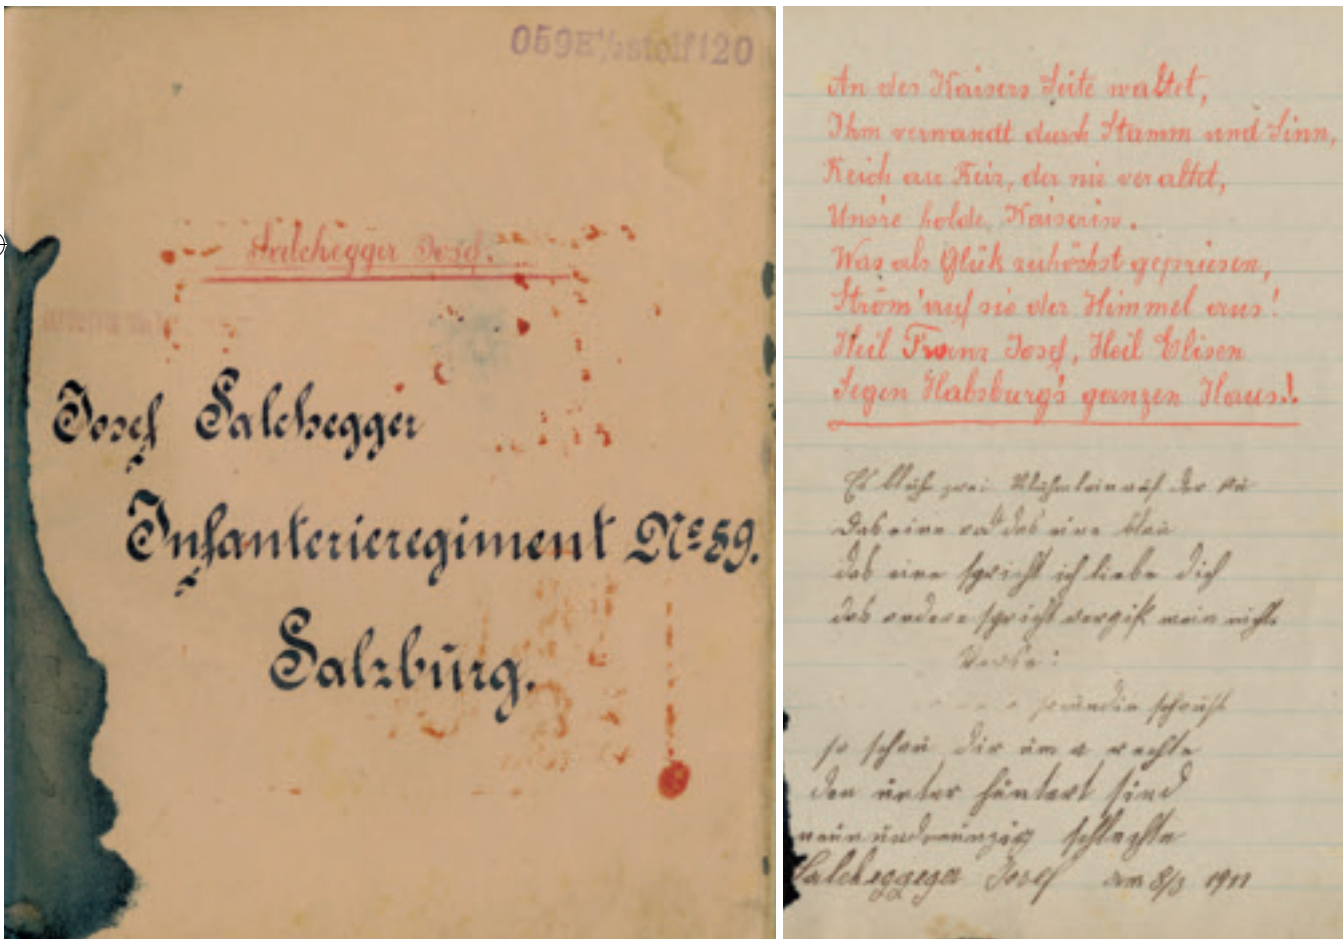 Salchegger Josef.
Josef Salchegger
Infanterieregiment No 59.
Salzburg.
An des Kaisers Seite waltet,
Ihm verwandt durch Stamm und Sinn,
Reich an Reiz, der nie veraltet,
Uns're holde Kaiserin.
Was als Glük zuhöchst gepriesen,
Ström' auf sie der Himmel aus!
Heil Franz Josef, Heil Elisen
Segen Habsburg's ganzen Haus!
Es blüh zwei Blühmlein auf der au
Das eine rot das eine blau
das eine spricht ich liebe dich
das andere spricht vergiß mein nicht
schaust
so schau dir um a rechte
den unter hundert sind
neunundneunzig schlechte
Salchegger Josef am 8/3 1911